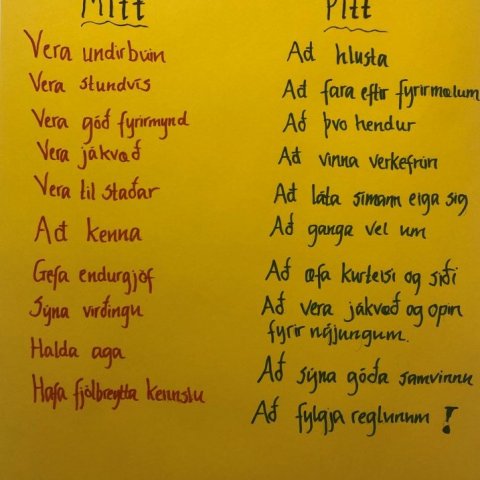 Mitt
Vera undirbúin
Vera stundvís
Vera góð fyrirmynd
Vera jákvæð
Vera til staðar
Að kenna
Gefa endurgjöf
Sýna virðingu
Halda aga
Hafa fjölbreytta kennslu
Þitt
Að hlusta
Að fara eftir fyrirmælum
Að þvo hendur
Að vinna verkefnin
Að láta símann eiga sig
Að ganga vel um
Að æfa kurteisi og siði
Að vera jákvæð og opin
fyrir nýjungum.
Að sýna góða samvinnu
Að fylgja reglunum !